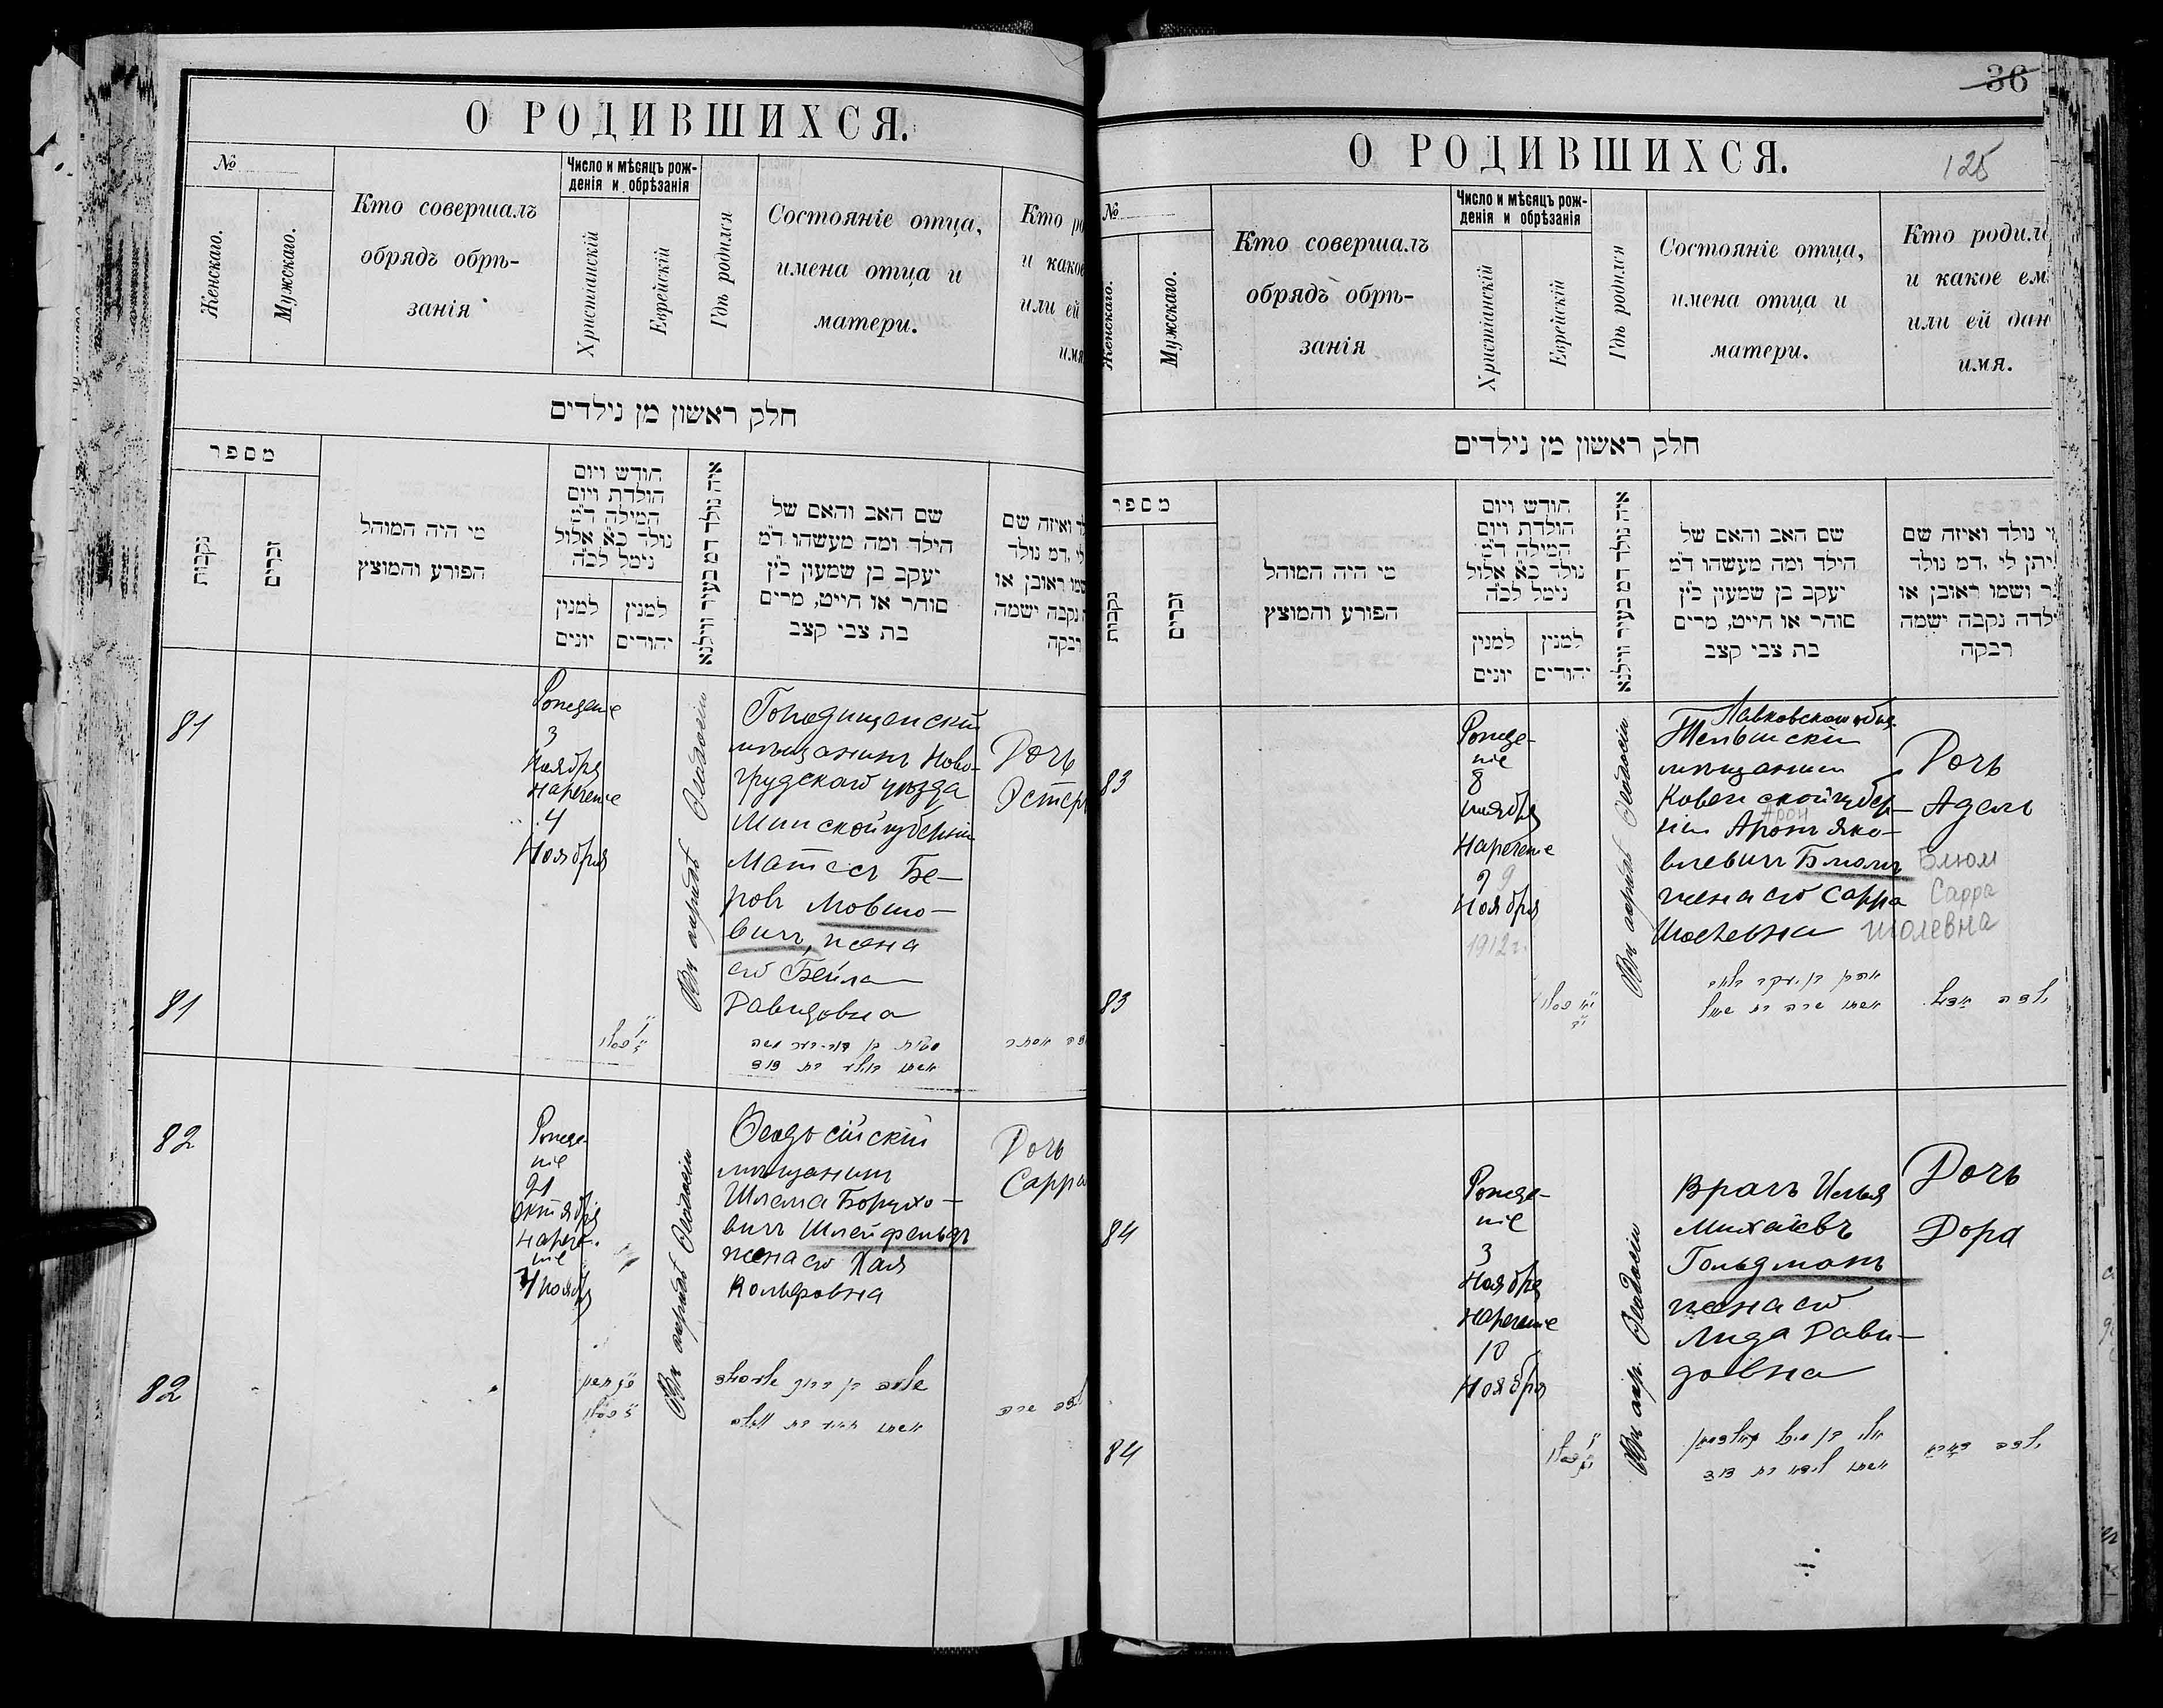 О РОДИВШИХСЯ.
№
Женскаго.
Мужскаго.
Кто совершалъ
обрядъ обрѣ-
занія
Число и мѣсяцъ рож-
денія и обрѣзанія
Христіанскій
Еврейскій
Гдѣ родился
Состояніе отца,
имена отца и
матери.
Кто ро
и какое
или ей
имя
חלק ראשון מן נילדים
מספר
נקבות
זכרים
מי היה המוהל
הפורע והמוצץ
חודש ויום
הולדת ויום
המילה ד"מ
נולד כ"א אלול
נימל לכ"ה
למנין
יונים
למנין
יהודים
איה נולד דמ בעיר ווילנא
שם האב והאם של
הילד ומה מעשהו ד"מ
יעקב בן שמעון כ"ץ
סוחר או חייט, מרים
בת צבי קצב
ואיזה שם
לי .דמ נולד
שמו ראובן או
נקבה ישמה
רבקה
81
Рожденіе
3
Ноября
нареченіе
4
Ноября
Въ городѣ Ѳеодосіи
Городищенскій
мѣщанинъ Ново-
грудскаго уѣзда
Минской губерніи
Матесъ Бе-
ровъ Мовшо-
вичъ, жена
его Бейла
Давидовна
Дочь
Эстеръ
81
82
Рожде-
ніе
21
октября
нарече-
ніе
4 ноября
Въ городѣ Ѳеодосіи
Ѳеодосійскій
мѣщанинъ
Шлема Борухо-
вичъ Шлейфельдъ
жена его Хая
Вольфовна
Дочь
Сарра
82
36
125
О РОДИВШИХСЯ.
№
Женскаго.
Мужскаго.
Кто совершалъ
обрядъ обрѣ-
занія
Число и мѣсяцъ рож-
денія и обрѣзанія
Христіанскій
Еврейскій
Гдѣ родился
Состояніе отца,
имена отца и
матери.
Кто родилс
и какое ем
или ей дан
имя.
חלק ראשון מן נילדים
מספר
נקבות
זכרים
מי היה המוהל
הפורע והמוצץ
חודש ויום
הולדת ויום
המילה ד"מ
נולד כ"א אלול
נימל לכ"ה
למנין
יונים
למנין
יהודים
איה נולד דמ בעיר ווילנא
שם האב והאם של
הילד ומה מעשהו ד"מ
יעקב בן שמעון כ"ץ
סוחר או חייט, מרים
בת צבי קצב
מי נולד ואיזה שם
ניתן לי .דמ נולד
זכר ושמו ראובן או
ילדה נקבה ישמה
רבקה
83
Рожде-
ніе
8
ноября
Нареченіе
9 9
Ноября
1912 г.
Въ городѣ Ѳеодосіи
Лавковскаго общ.
Тельшскій
мѣщанинъ
Ковенской губер-
ніи Аронъ Яко-
Арон
влевичъ Блюмъ
жена его Сарра
Шолевна
Дочь
Адель
Блюм
Сарра
Шолевна
83
84
Рожде-
ніе
3
Ноября
нареченіе
10
Ноября
Въ гор. Ѳеодосіи
Врачъ Илья
Михаевъ
Гольдманъ
жена его
Лида Дави-
довна
Дочь
Дора
84